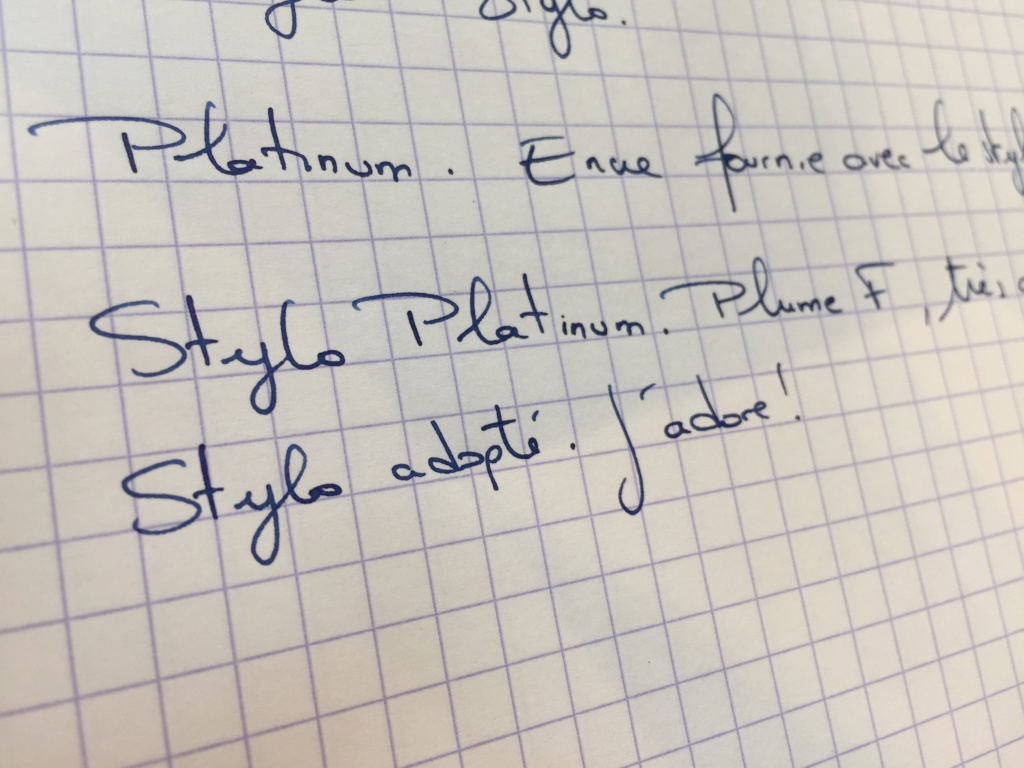 Stylo.
Platinum. Encre fournie avec le styl
Stylo Platinum. Plume F, très
Stylo adopté. J'adore!